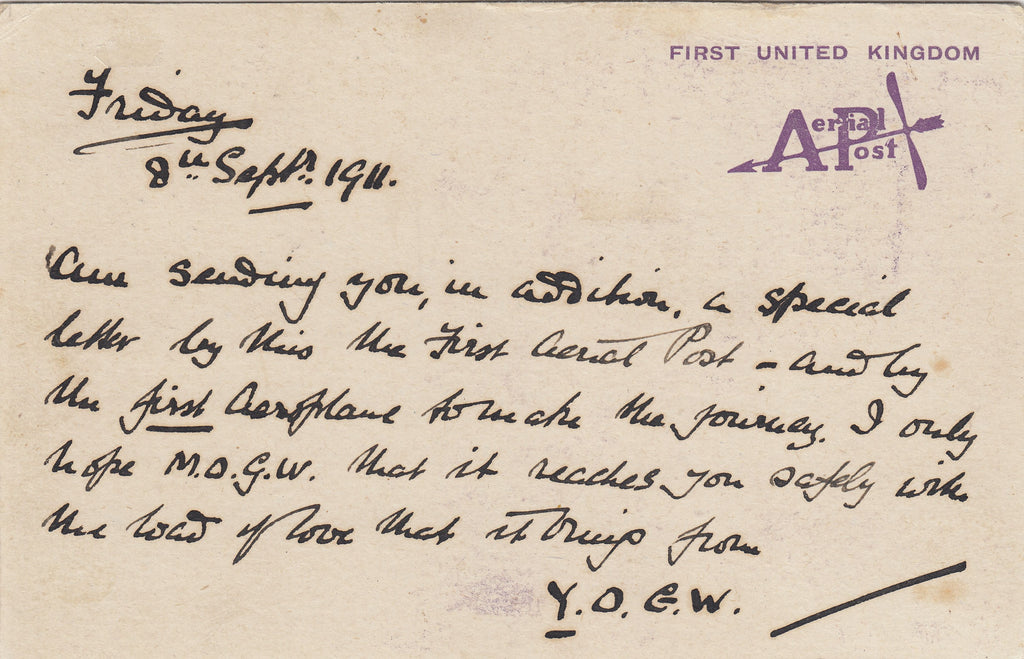 FIRST UNITED KINGDOM
Aerial Post
Friday
8th Sept. 1911.
Am sending you, in addition, a special
letter by this the First Aerial Post - and by
the first Aeroplane to make the journey. I only
hope M.O.G.W. that it reaches you safely with
the load of love that it brings from
Y.O.G.W.